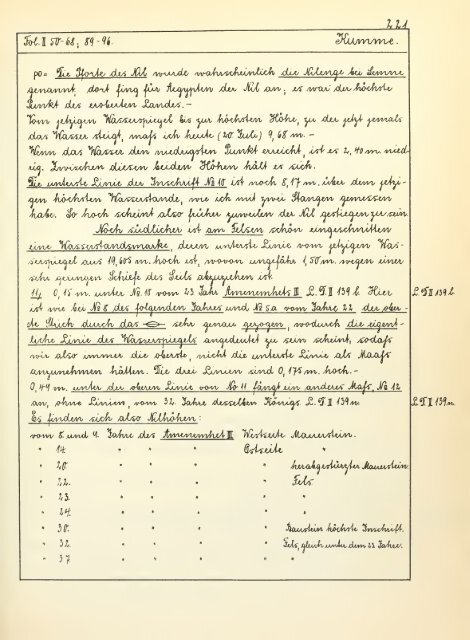 221
Fol. II 50-68; 89-96. Kumme.
50= Die Pforte des Nil wurde wahrscheinlich die Nilenge bei Semne
genannt, dort fing für Aegypten der Nil an; es war der höchste
Punkt des eroberten Landes.-
Vom jetzigen Wasserspiegel bis zur höchsten Höhe, zu der jetzt jemals
das Wasser steigt, mass ich heute (20 Juli) 9,68 m.-
Wenn das Wasser den niedrigsten Punkt erreicht, ist es 2,40 m. nied-
rig. Zwischen diesen beiden Höhen hält es sich.
Die unterste Linie der Inschrift № 10 ist noch 8,17 m. über dem jetzi-
gen höchsten Wasserstande, wie ich mit zwei Stangen gemessen
habe. So hoch scheint also früher zuweilen der Nil gestiegen zu sein.
Noch südlicher ist am Felsen schön eingeschnitten
eine Wasserstandsmarke, deren unterste Linie vom jetzigen Was-
serspiegel aus 19,605 m. hoch ist, wovon ungefähr 1,50 m. wegen einer
sehr geringen Schiefe des Seils abzuziehen ist.
11, 0,15 m. unter № 10 vom 23 Jahr Amenemhets III L.D II 139 l. Hier L.D II 139 l.
ist wie bei № 8 des folgenden Jahres und № 5a vom Jahre 22 der ober-
ste Strich durch das 𓂋 sehr genau gezogen, wodurch die eigent-
liche Linie des Wasserspiegels angedeutet zu sein scheint, sodass
wir also immer die oberste, nicht die unterste Linie als Maass
anzunehmen hätten. Die drei Linien sind 0,175 m. hoch.-
0,44 m. unter der oberen Linie von No 11, fängt ein anderes Mass, № 12
an, ohne Linien, vom 32. Jahre desselben Königs L.D II 139 n. L.D II 139 n.
Es finden sich also Nilhöhen:
vom 8 und 4. Jahre des Amenemhet III Westseite Mauerstein.
" 14. " " " Ostseite "
" 20. " " " " herabgestürzter Mauerstein
" 22. " " " " Fels
" 23. " " " " "
" 24. " " " " "
" 30. " " " " Baustein höchste Inschrift.
" 32. " " " " Fels, gleich unter dem 23 Jahre.
" 37 " " " " "